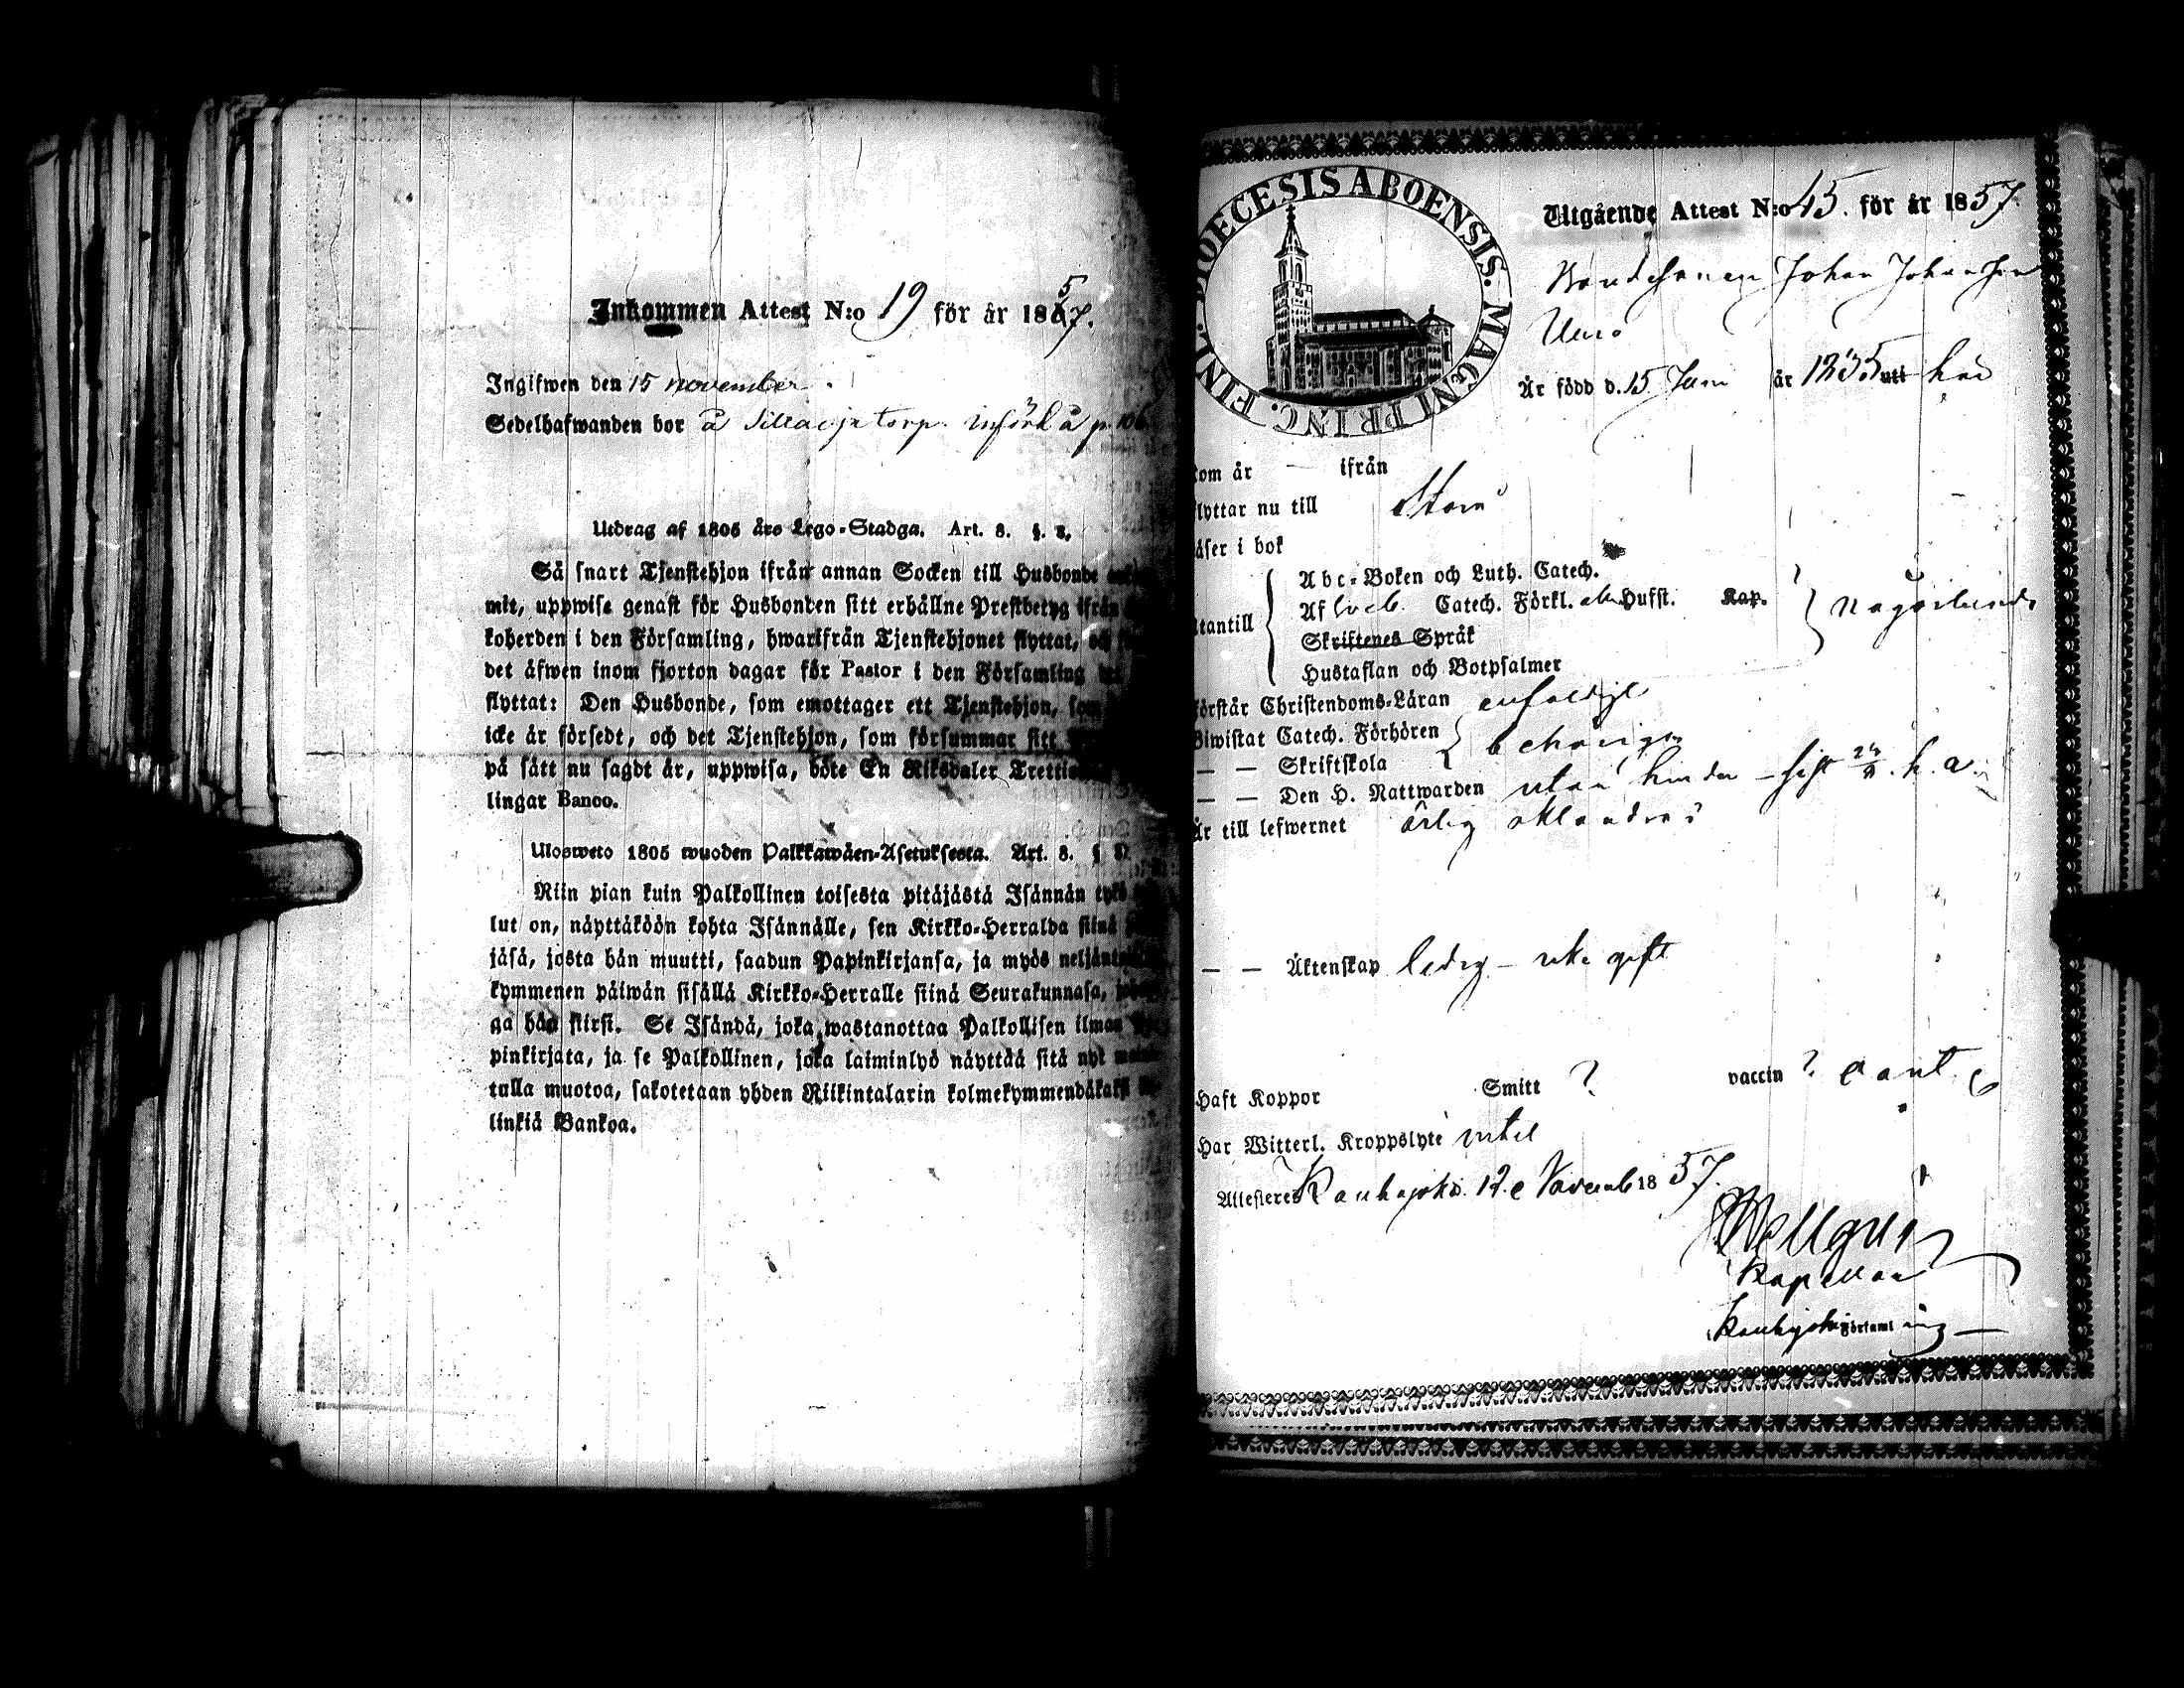 Inkommen Attest N:o 19 för år 1857.
Ingifwen den 15 november.
Sedelhafwanden bor å torp. införd å p. 106
Utdrag af 1805 års Lego-Stadga. Art. 8. §. 8.
Så snart Tjenstehjon ifrån annan Socken till Husbonde
mit, uppwise genast för Husbonden sitt erhållne Prestbetyg ifrån
koherden i den Församling, hwarifrån Tjenstehjonet flyttat, och
det äfwen inom fjorton dagar för Pastor i den Församling
flyttat: Den Husbonde, som emottager ett Tjenstehjon, som
icke är försedt, och det Tjenstehjon, som försummar sitt
på sätt nu sagdt är, uppwisa, böte En Riksdaler Trettio
lingar Banco.
Ulosweto 1805 wuoden Palkkawäen-Asetuksesta. Art. 8. §
Niin pian kuin Palkollinen toisesta pitäjästä Isännän tykö
lut on, näyttäköön kohta Isännälle, sen Kirkko-Herralda siinä
jäsä, josta hän muutti, saadun Papinkirjansa, ja myös neljäntoista
kymmenen päiwän sisällä Kirkko-Herralle siinä Seurakunnasa,
ga hän siirsi. Se Isändä, joka wastanottaa Palkollisen ilman
pinkirjata, ja se Palkollinen, joka laiminlyö näyttää sitä nyt
tulla muotoa, sakotetaan yhden Riikintalarin kolmekymmendäkaksi
linkiä Bankoa.
DIOECESIS ABOENSIS. MAGNI PRINC. FINL.
Utgående Attest N:o 45. för år 1857.
Bondesonen Johan Johansson
Är född d. 15 Juni år 1835 uti här
kom år — ifrån
flyttar nu till
läser i bok
Abc-Boken och Luth. Catech.
Af Catech. Förkl. Hufst. Kap.
utantill
Skriftenes Språk
Hustaflan och Botpsalmer
någorlunda
förstår Christendoms-Läran enfaldigt
Biwistat Catech. Förhören
— — Skriftskola
behörigen
— — Den H. Nattwarden utan hinder — sist h. a.
Är till lefwernet ärlig oklandrad
— — Äktenskap ledig — icke gift
Haft Koppor Smitt ? vaccin ?
Har Witterl. Kroppslyte intet
Attesteres Kauhajoki 12 November 1857.
Kapellan
Kauhajoki Församling —